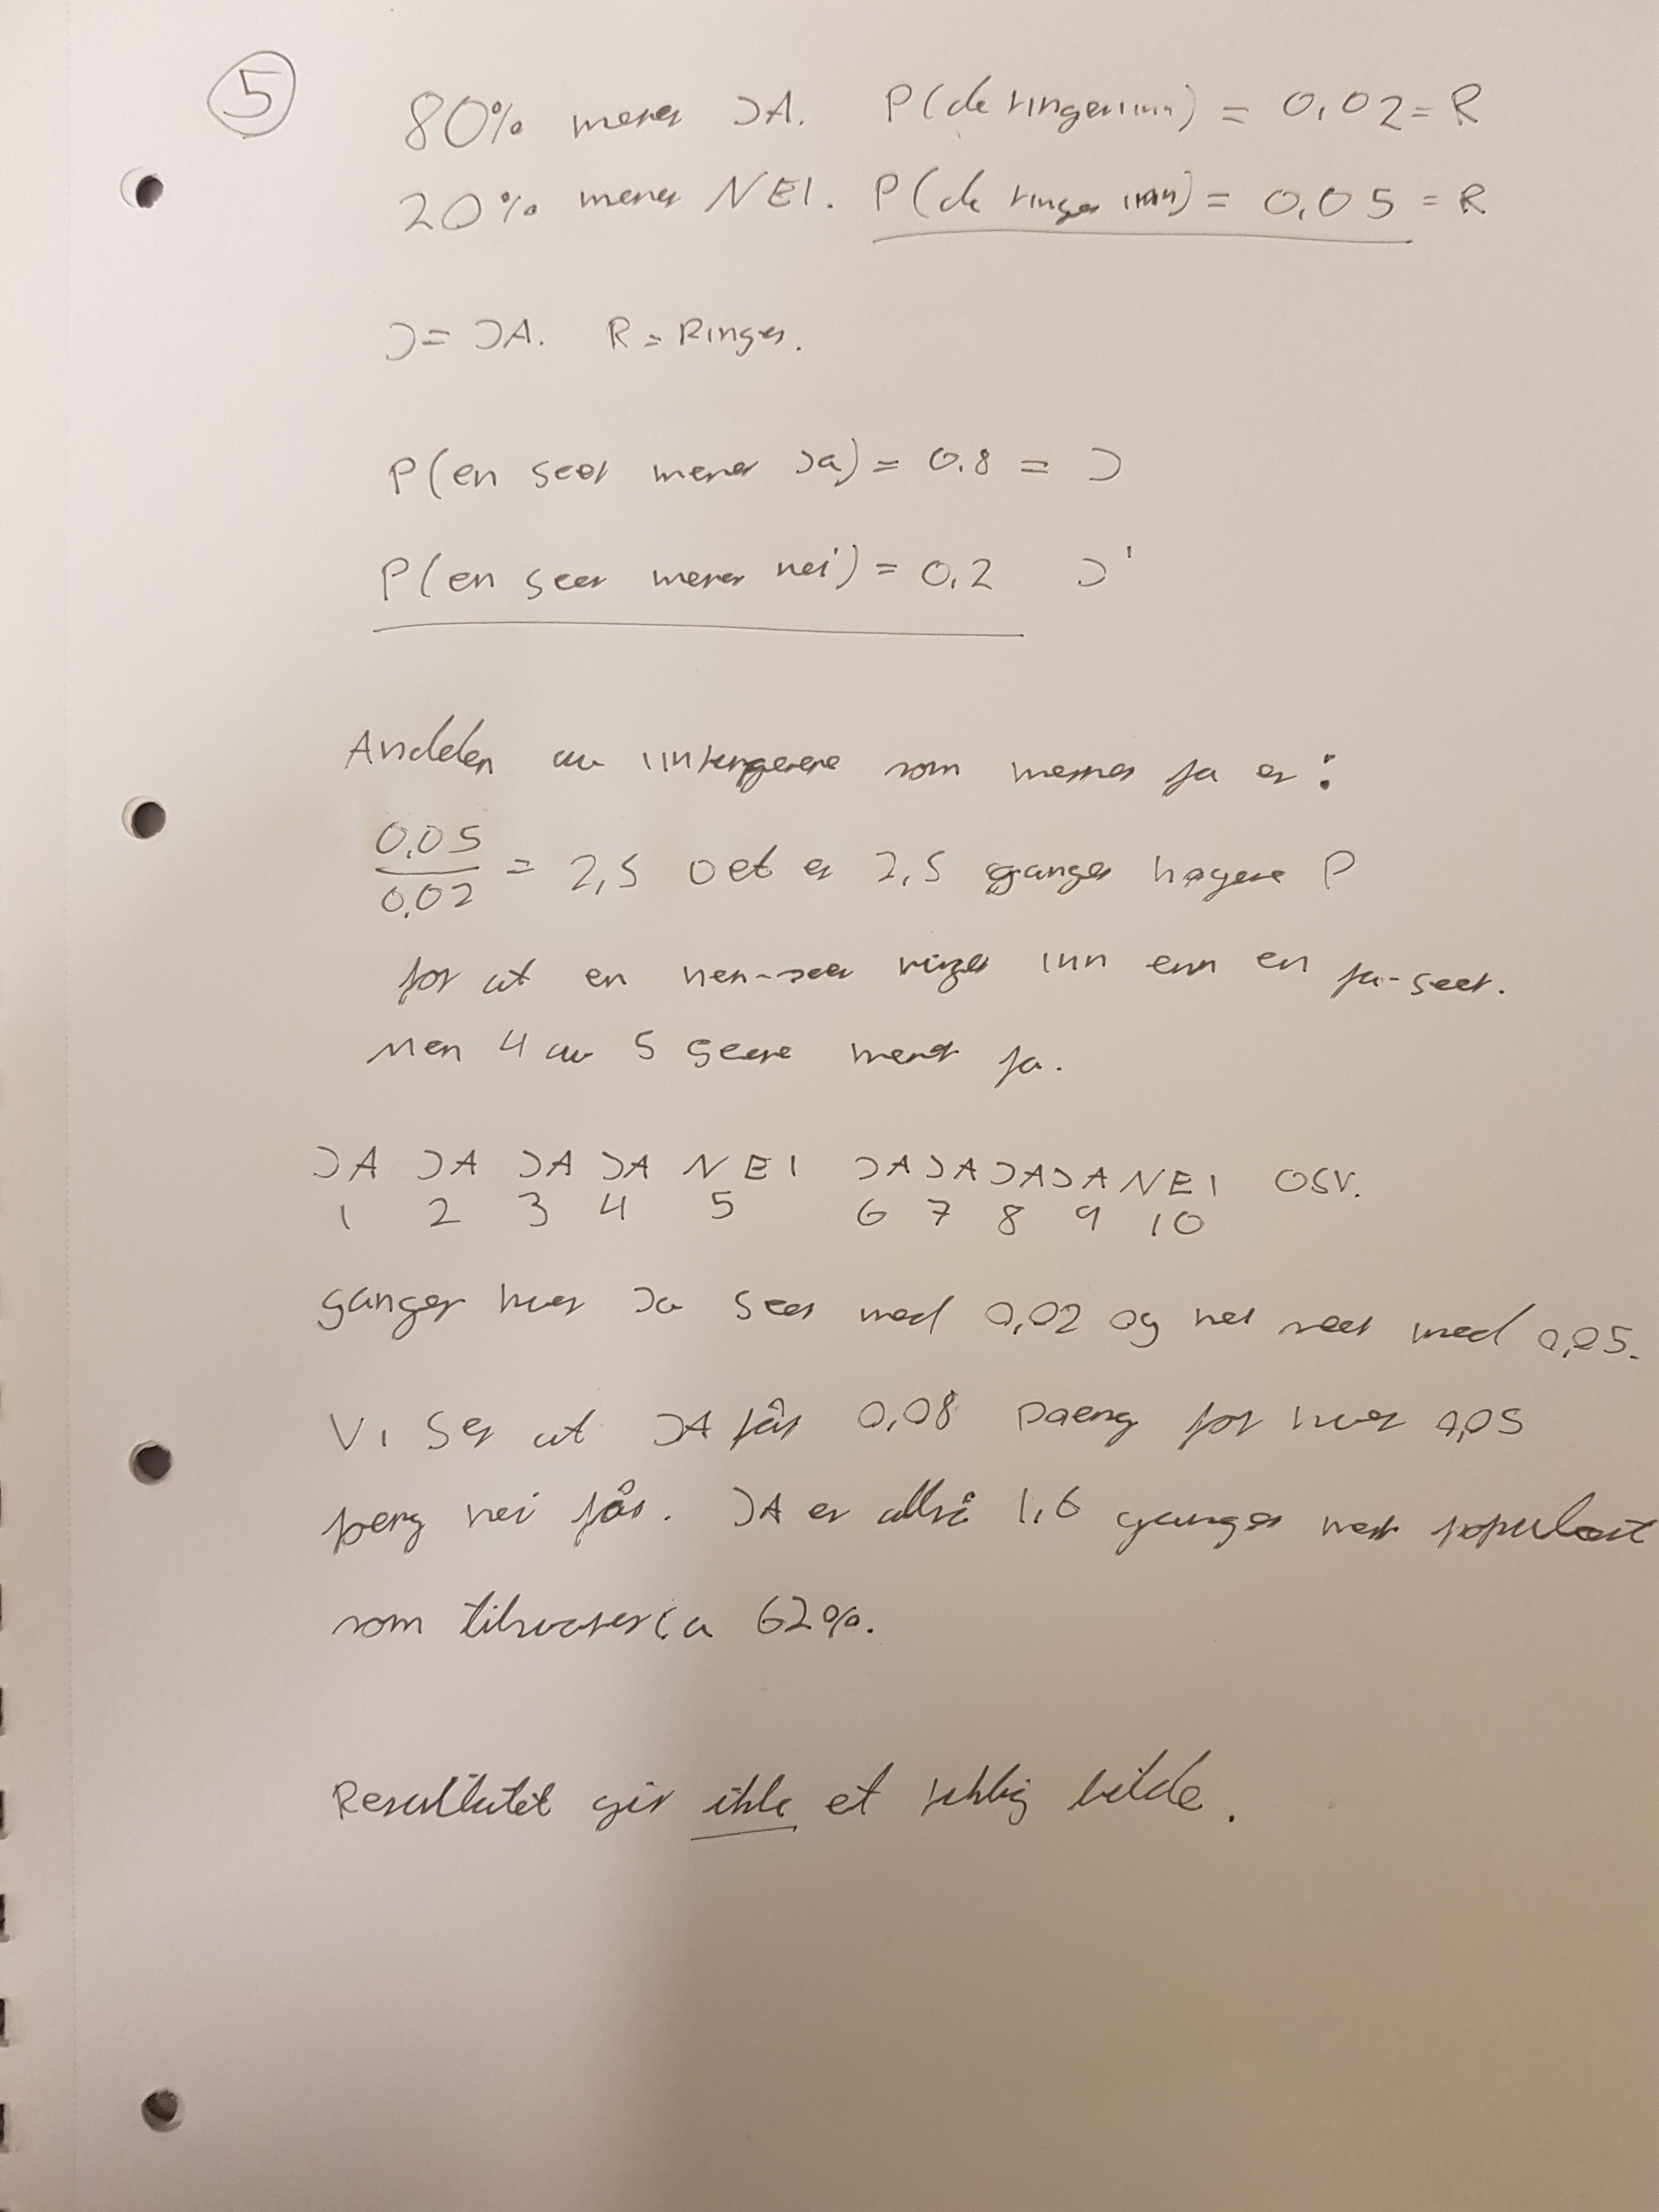 5
80% mener JA. P(de ringer inn) = 0,02 = R
20% mener NEI. P(de ringer inn) = 0,05 = R
J = JA. R = Ringer.
P(en seer mener Ja) = 0.8 = J
P(en seer mener nei) = 0,2 J'
Andelen av innringere som mener ja er:
0,05
0,02 = 2,5 Det er 2,5 ganger høyere P
for at en nei-seer ringer inn enn en ja-seer.
Men 4 av 5 seere mener ja.
JA JA JA JA NEI JA JA JA JA NEI OSV.
1 2 3 4 5 6 7 8 9 10
ganger hver Ja seer med 0,02 og nei seer med 0,05.
Vi ser at JA får 0,08 poeng for hver 0,05
poeng nei får. JA er altså 1,6 ganger mer populært
som tilsvarer ca 62%.
Resultatet gir ikke et riktig bilde.